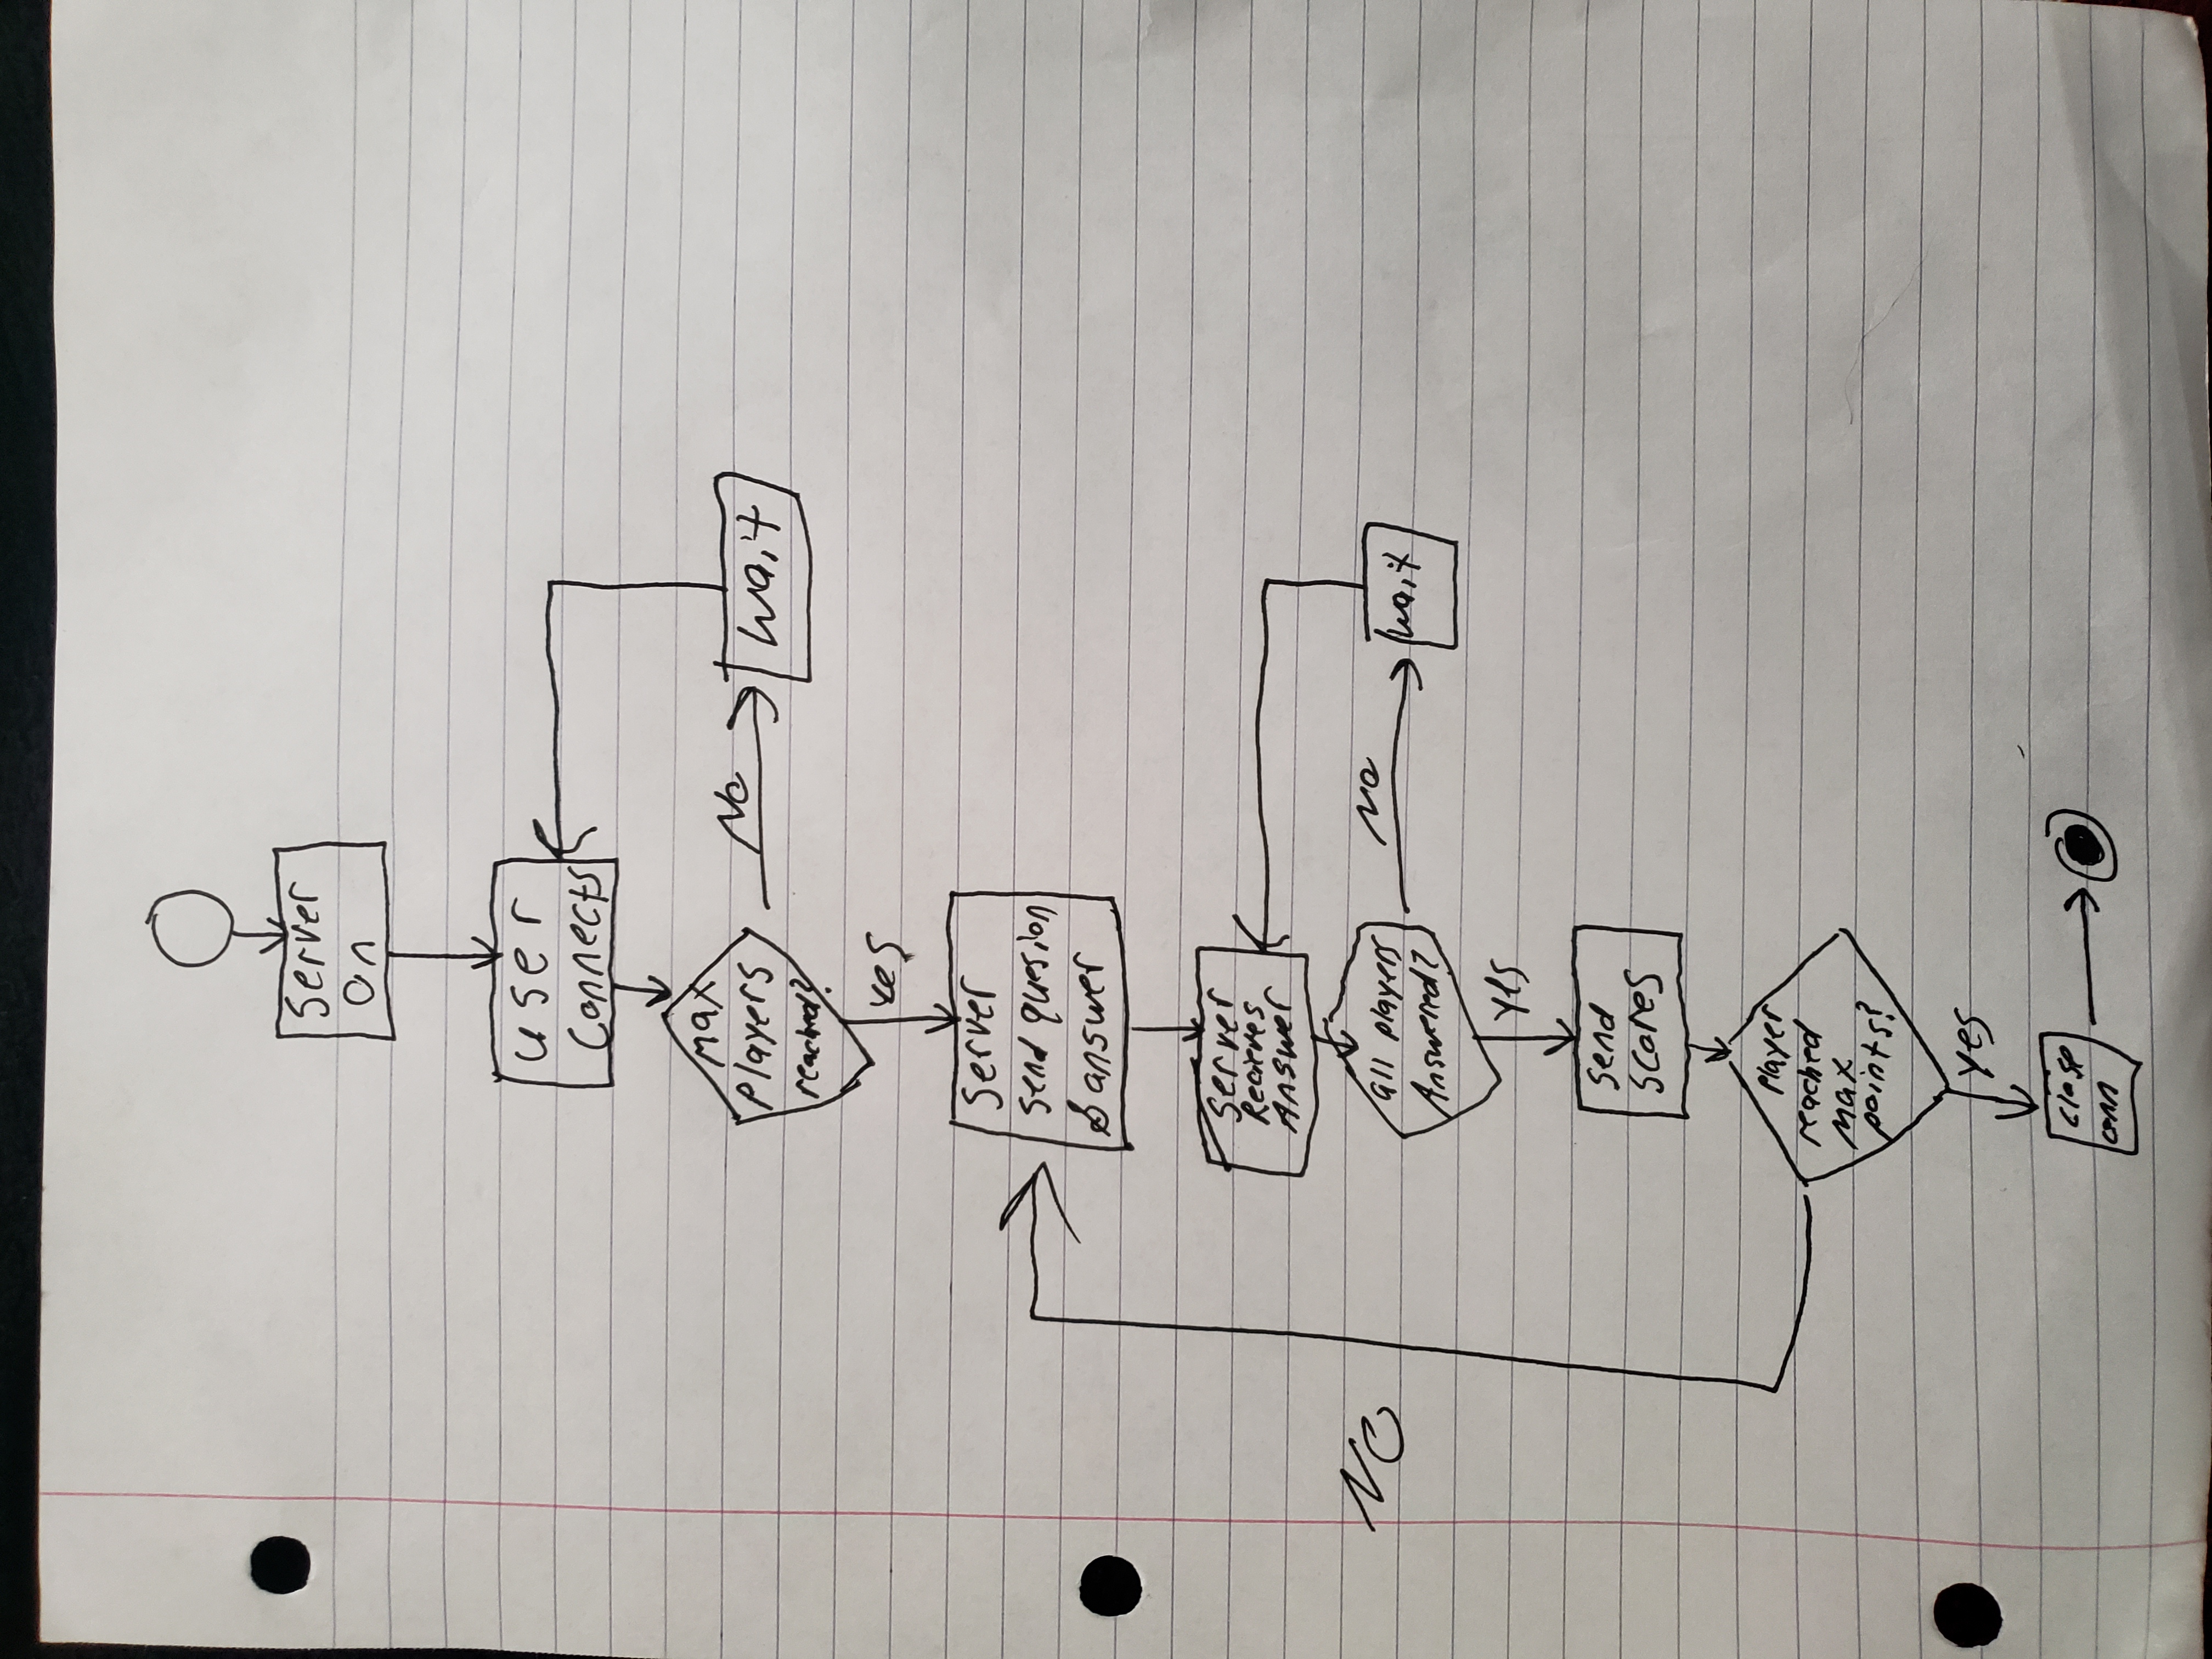 Server
On
user
Connects
Max
Players
reached?
No
wait
yes
Server
send quesion
& answer
Server
Recieves
Answer
all players
Answered?
No
wait
NO
yes
send
scores
Player
reached
Max
points?
yes
close
conn